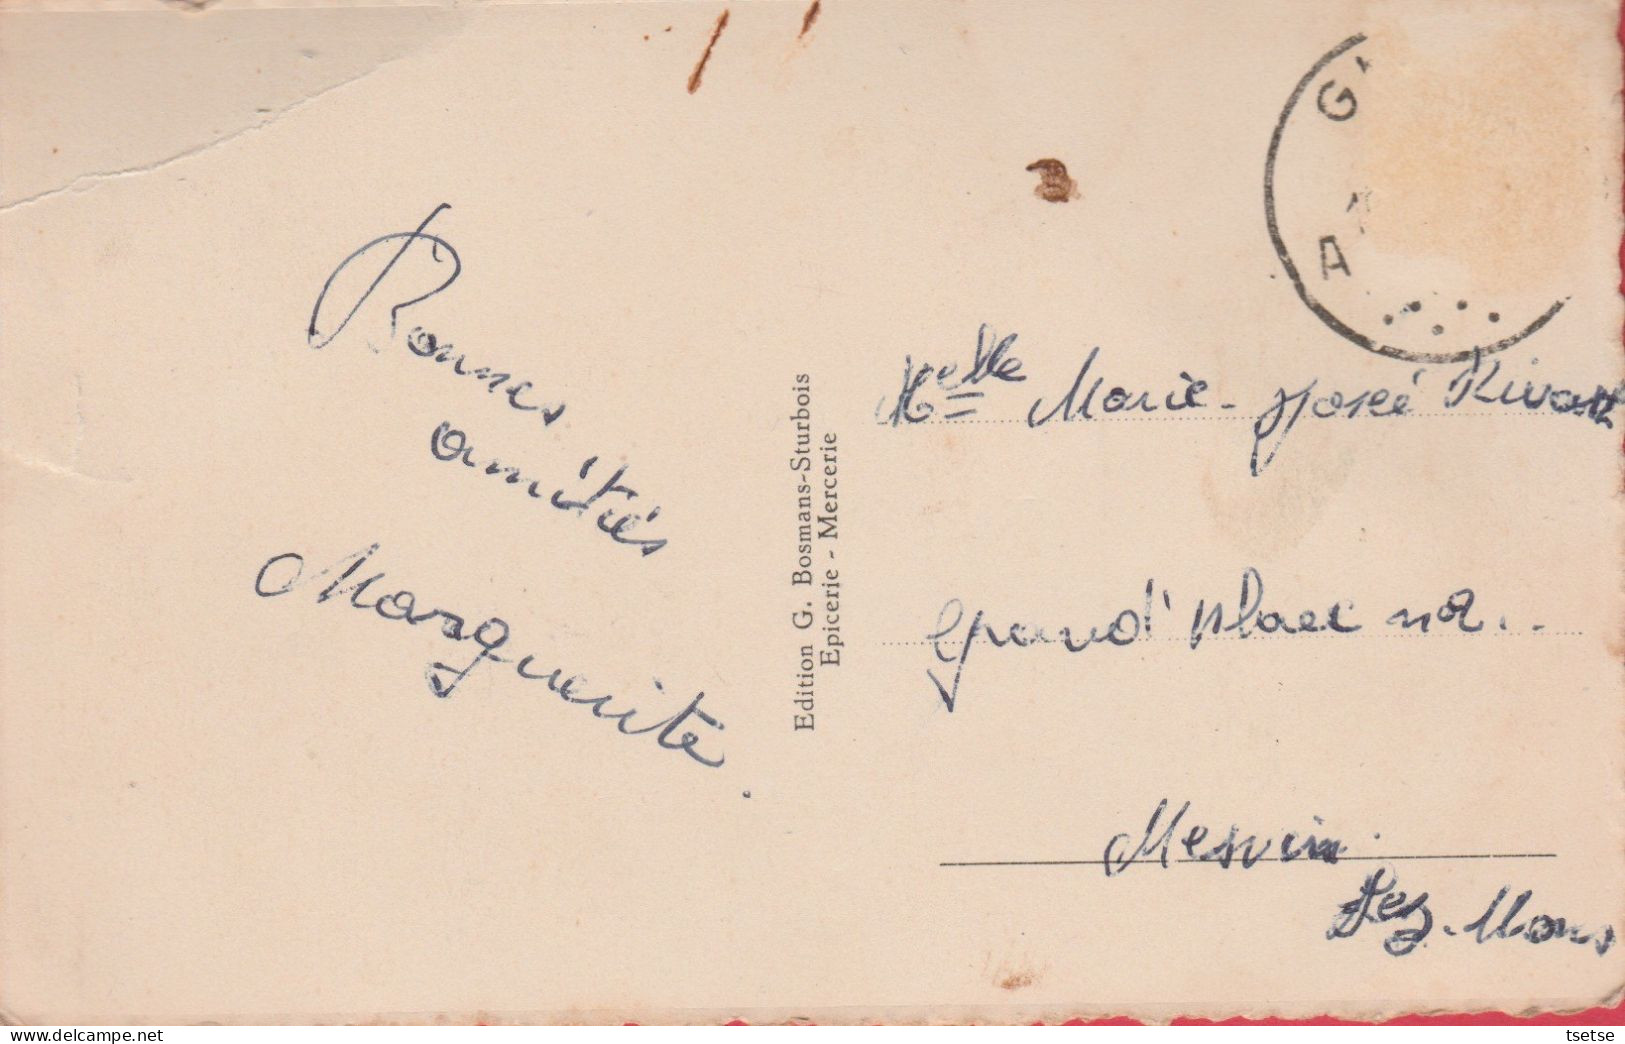 Bonnes
amitiés
Marguerite.
Edition G. Bosmans-Sturbois
Epicerie - Mercerie
G
A
Melle Marie-José
Grand'Place n2..
Mesvin.
Lez-Mons
www.delcampe.net
tsetse